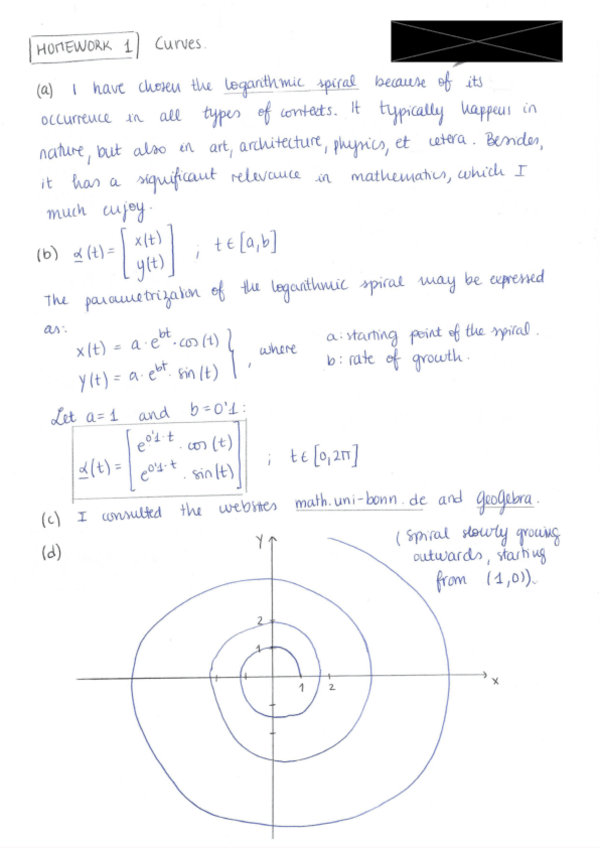 HOMEWORK 1 Curves.
(a) I have chosen the logarithmic spiral because of its
occurrence in all types of contexts. It typically happens in
nature, but also in art, architecture, physics, et cetera. Besides,
it has a significant relevance in mathematics, which I
much enjoy.
(b) α(t) = [x(t) y(t)] ; t ∈ [a,b]
The parametrization of the logarithmic spiral may be expressed
as:
x(t) = a · e^bt · cos(t)
y(t) = a · e^bt · sin(t) } , where
a: starting point of the spiral.
b: rate of growth.
Let a=1 and b=0'1:
α(t) = [e^0'1·t · cos(t) e^0'1·t · sin(t)] ; t ∈ [0,2π]
(c) I consulted the websites math.uni-bonn.de and geogebra.
(d)
(Spiral slowly growing
outwards, starting
from (1,0)).
Y
2
1
1 2 x